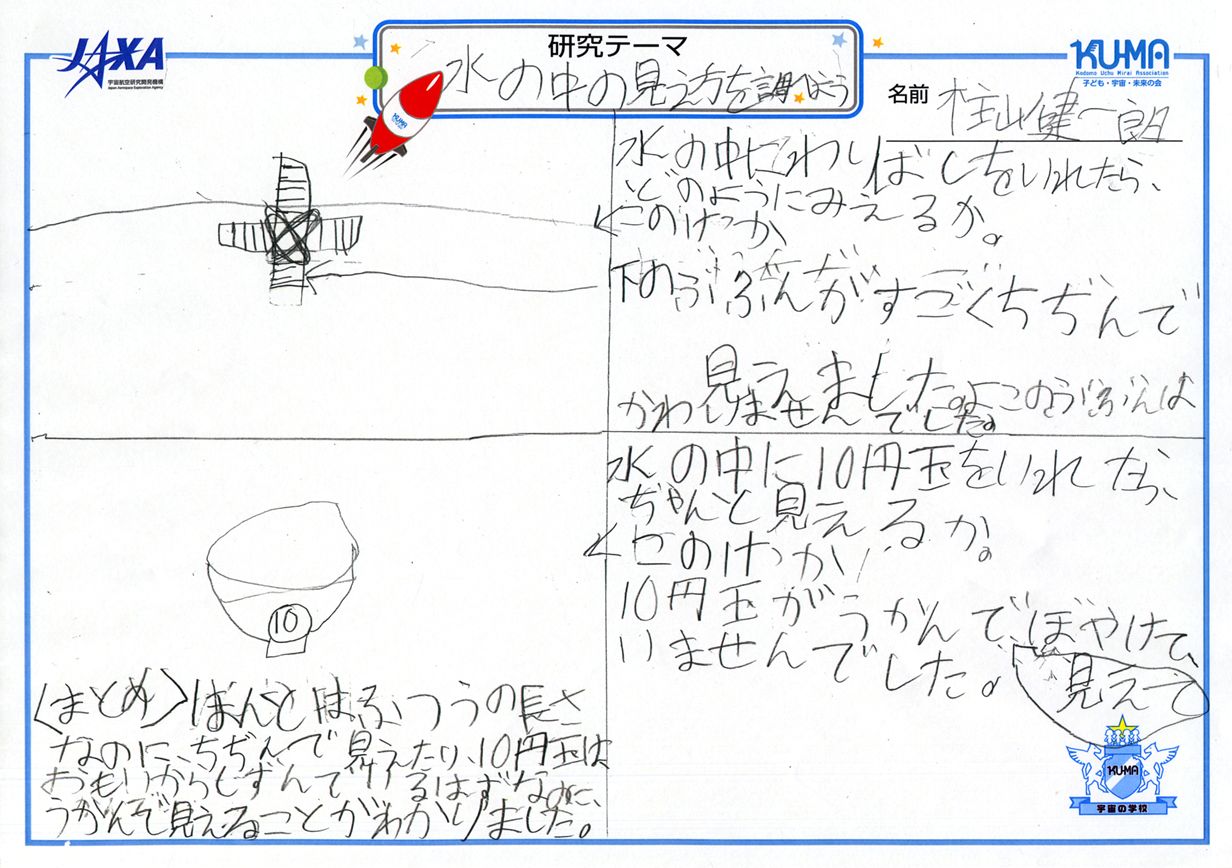 JAXA
宇宙航空研究開発機構
Japan Aerospace Exploration Agency
研究テーマ
水の中の見え方を調べよう
KUMA
Kodomo Uchu Mirai Association
子ども・宇宙・未来の会
名前 柱山健一朗
KUMA
水の中にわりばしをいれたら、
どのようにみえるか。
このけっか
下のぶぶんがすごくちぢんで
見えました。よこのぶぶんは
かわりませんでした。
水の中に10円玉をいれたら、
ちゃんと見えるか。
このけっか
10円玉がうかんで、ぼやけて、
見えて
いませんでした。
10
〈まとめ〉ほんとはふつうの長さ
なのに、ちぢんで見えたり、10円玉は
おもいからしずんでいるはずなのに、
うかんで見えることがわかりました。
KUMA
宇宙の学校